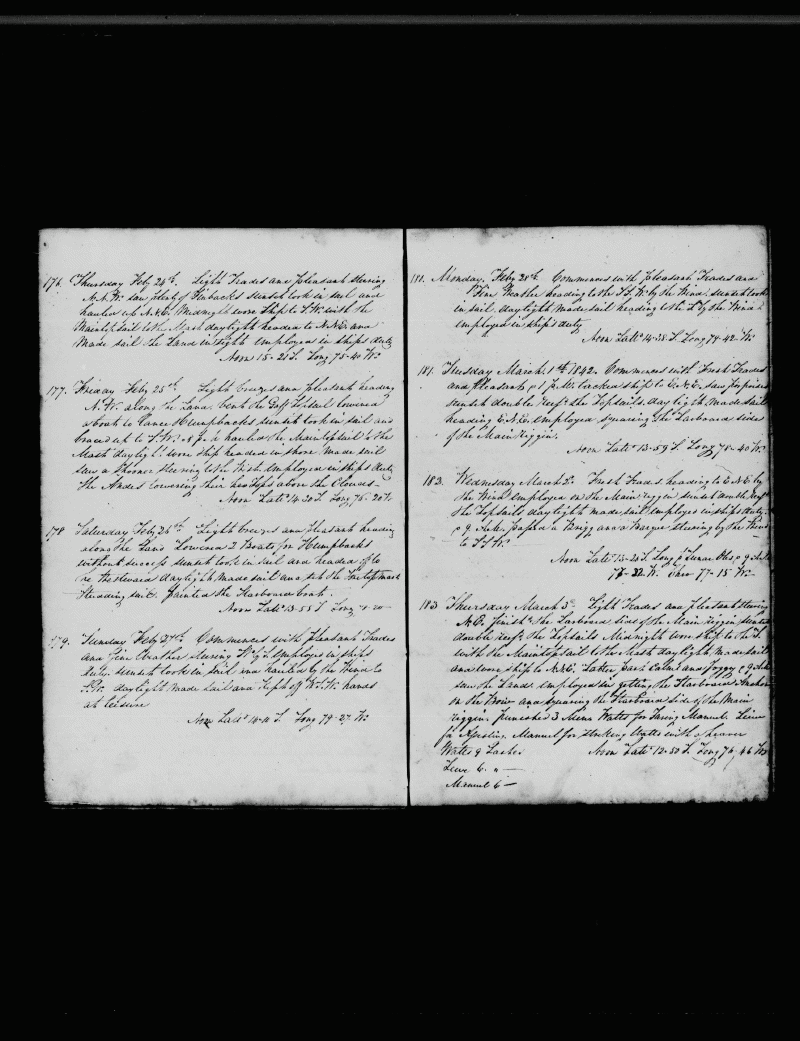 176. Thursday Feby 24th. Light Trades and Pleasant steering
N.N.W. saw plenty of Finbacks sunset took in sail and
hauled up N.N.E. Midnight wore Ship to S.W. with the
Maintopsail to the Mast daylight headed to N.N.E. and
Made sail the Land in sight Employed in ships duty
Noon 15-21 S. Long 75-40 W.
177. Friday Feby 25th. Light breezes and Pleasant heading
N.W. along the Land bent the Gaff Topsail lowered
a boat to lance Humpbacks sunset took in sail and
braced up to S.W. hauled the Maintopsail to the
Mast daylight wore ship headed in shore made sail
saw a Shooner steering to the Employed in ships duty
the Andes towering their above the Clouds
Noon Latd 14-30 S. Long 76-20 W.
178 Saturday Feby 26th Light breezes and pleasant heading
along the Land Lowered 2 Boats for Humpbacks
without success sunset took in sail and headed off to
the daylight made sail and set the Foretopmast
Studding sail. Painted the Starboard boat.
Noon Latd 13-55 S Long
179. Sunday Feby 27th. Commences with Pleasant Trades
and Fine Weather steering Employed in ships
duty. sunset took in sail and hauled by the Wind to
S.W. daylight made sail and kept off W.S.W. hands
at leisure
Noon Latd 14-11 S. Long 77-27 W.
181. Monday, Feby 28th Commences with Pleasant Trades and
Fine Weather heading to the S.S.W. by the Wind. sunset took
in sail. daylight made sail heading to the S by the Wind
employed in ships duty
Noon Latd 14-38 S. Long 78-42 W.
181. Tuesday March 1st 1842. Commences with Fresh Trades
and Pleasant at 1 P.M. tacked ship to E.N.E. saw porpoises
sunset double reefd the Topsails. daylight made sail
heading E.N.E. Employed squaring the Larboard side
of the Main Riggin.
Noon Latd 13-59 S. Long 78-40 W.
183. Wednesday March 2d. Fresh Trades heading to E.N.E. by
the Wind employed on the Main riggin sunset double reefd
the Topsails daylight made sail employed in ships duty
passed a Brigg and a Barque steering by the Wind
to S.S.W.
Noon Latd 13-20 S. Long Lunar Obs
77-22 W. Chro 77-15 W.
183 Thursday March 3d. Light Trades and pleasant steering
N.E. finishd the Larboard side of the Main Riggin sunset
double reefd the Topsails Midnight wore ship to the S.
with the Maintopsail to the Mast daylight, made sail
and wore ship to N.N.E. Latter part Calm and foggy
saw the Land employed in getting the Starboard Anchor
on the Bow and squaring the Starboard side of the Main
riggin. punished 3 Mens Walter for Manuel. Lieu
for Manuel for striking Walter with a
Walter 9 Lashes Noon Latd 12-50 S. Long 76, 46 W.
Lieu 6. "
Manuel 6